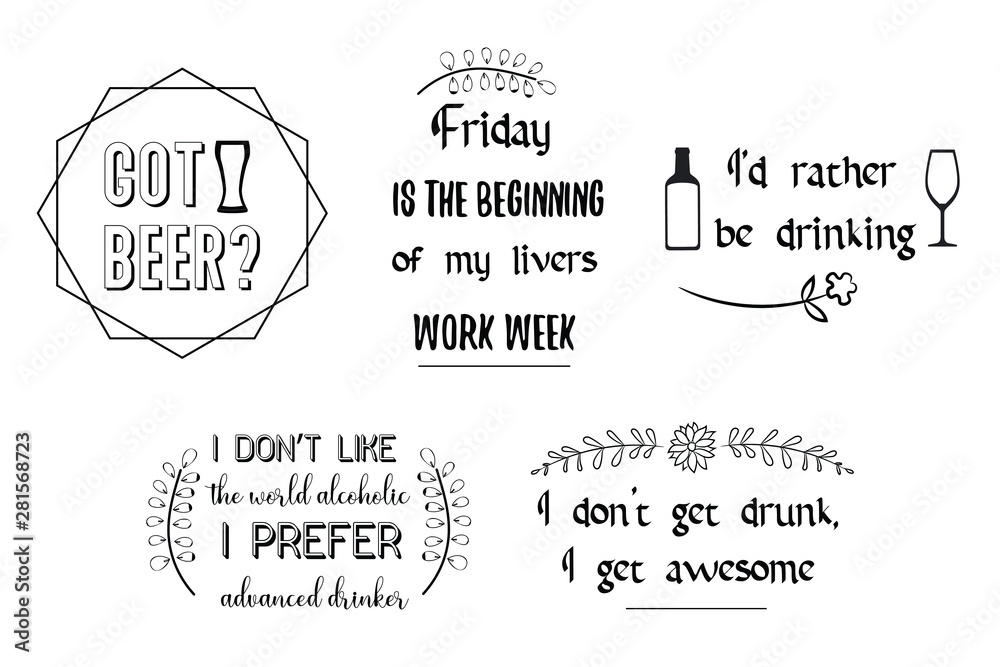 GOT
BEER?
Friday
IS THE BEGINNING
of my livers
WORK WEEK
I'd rather
be drinking
I DON'T LIKE
the world alcoholic
I PREFER
advanced drinker
I don't get drunk,
I get awesome
Adobe Stock | #281568723
Adobe Stock